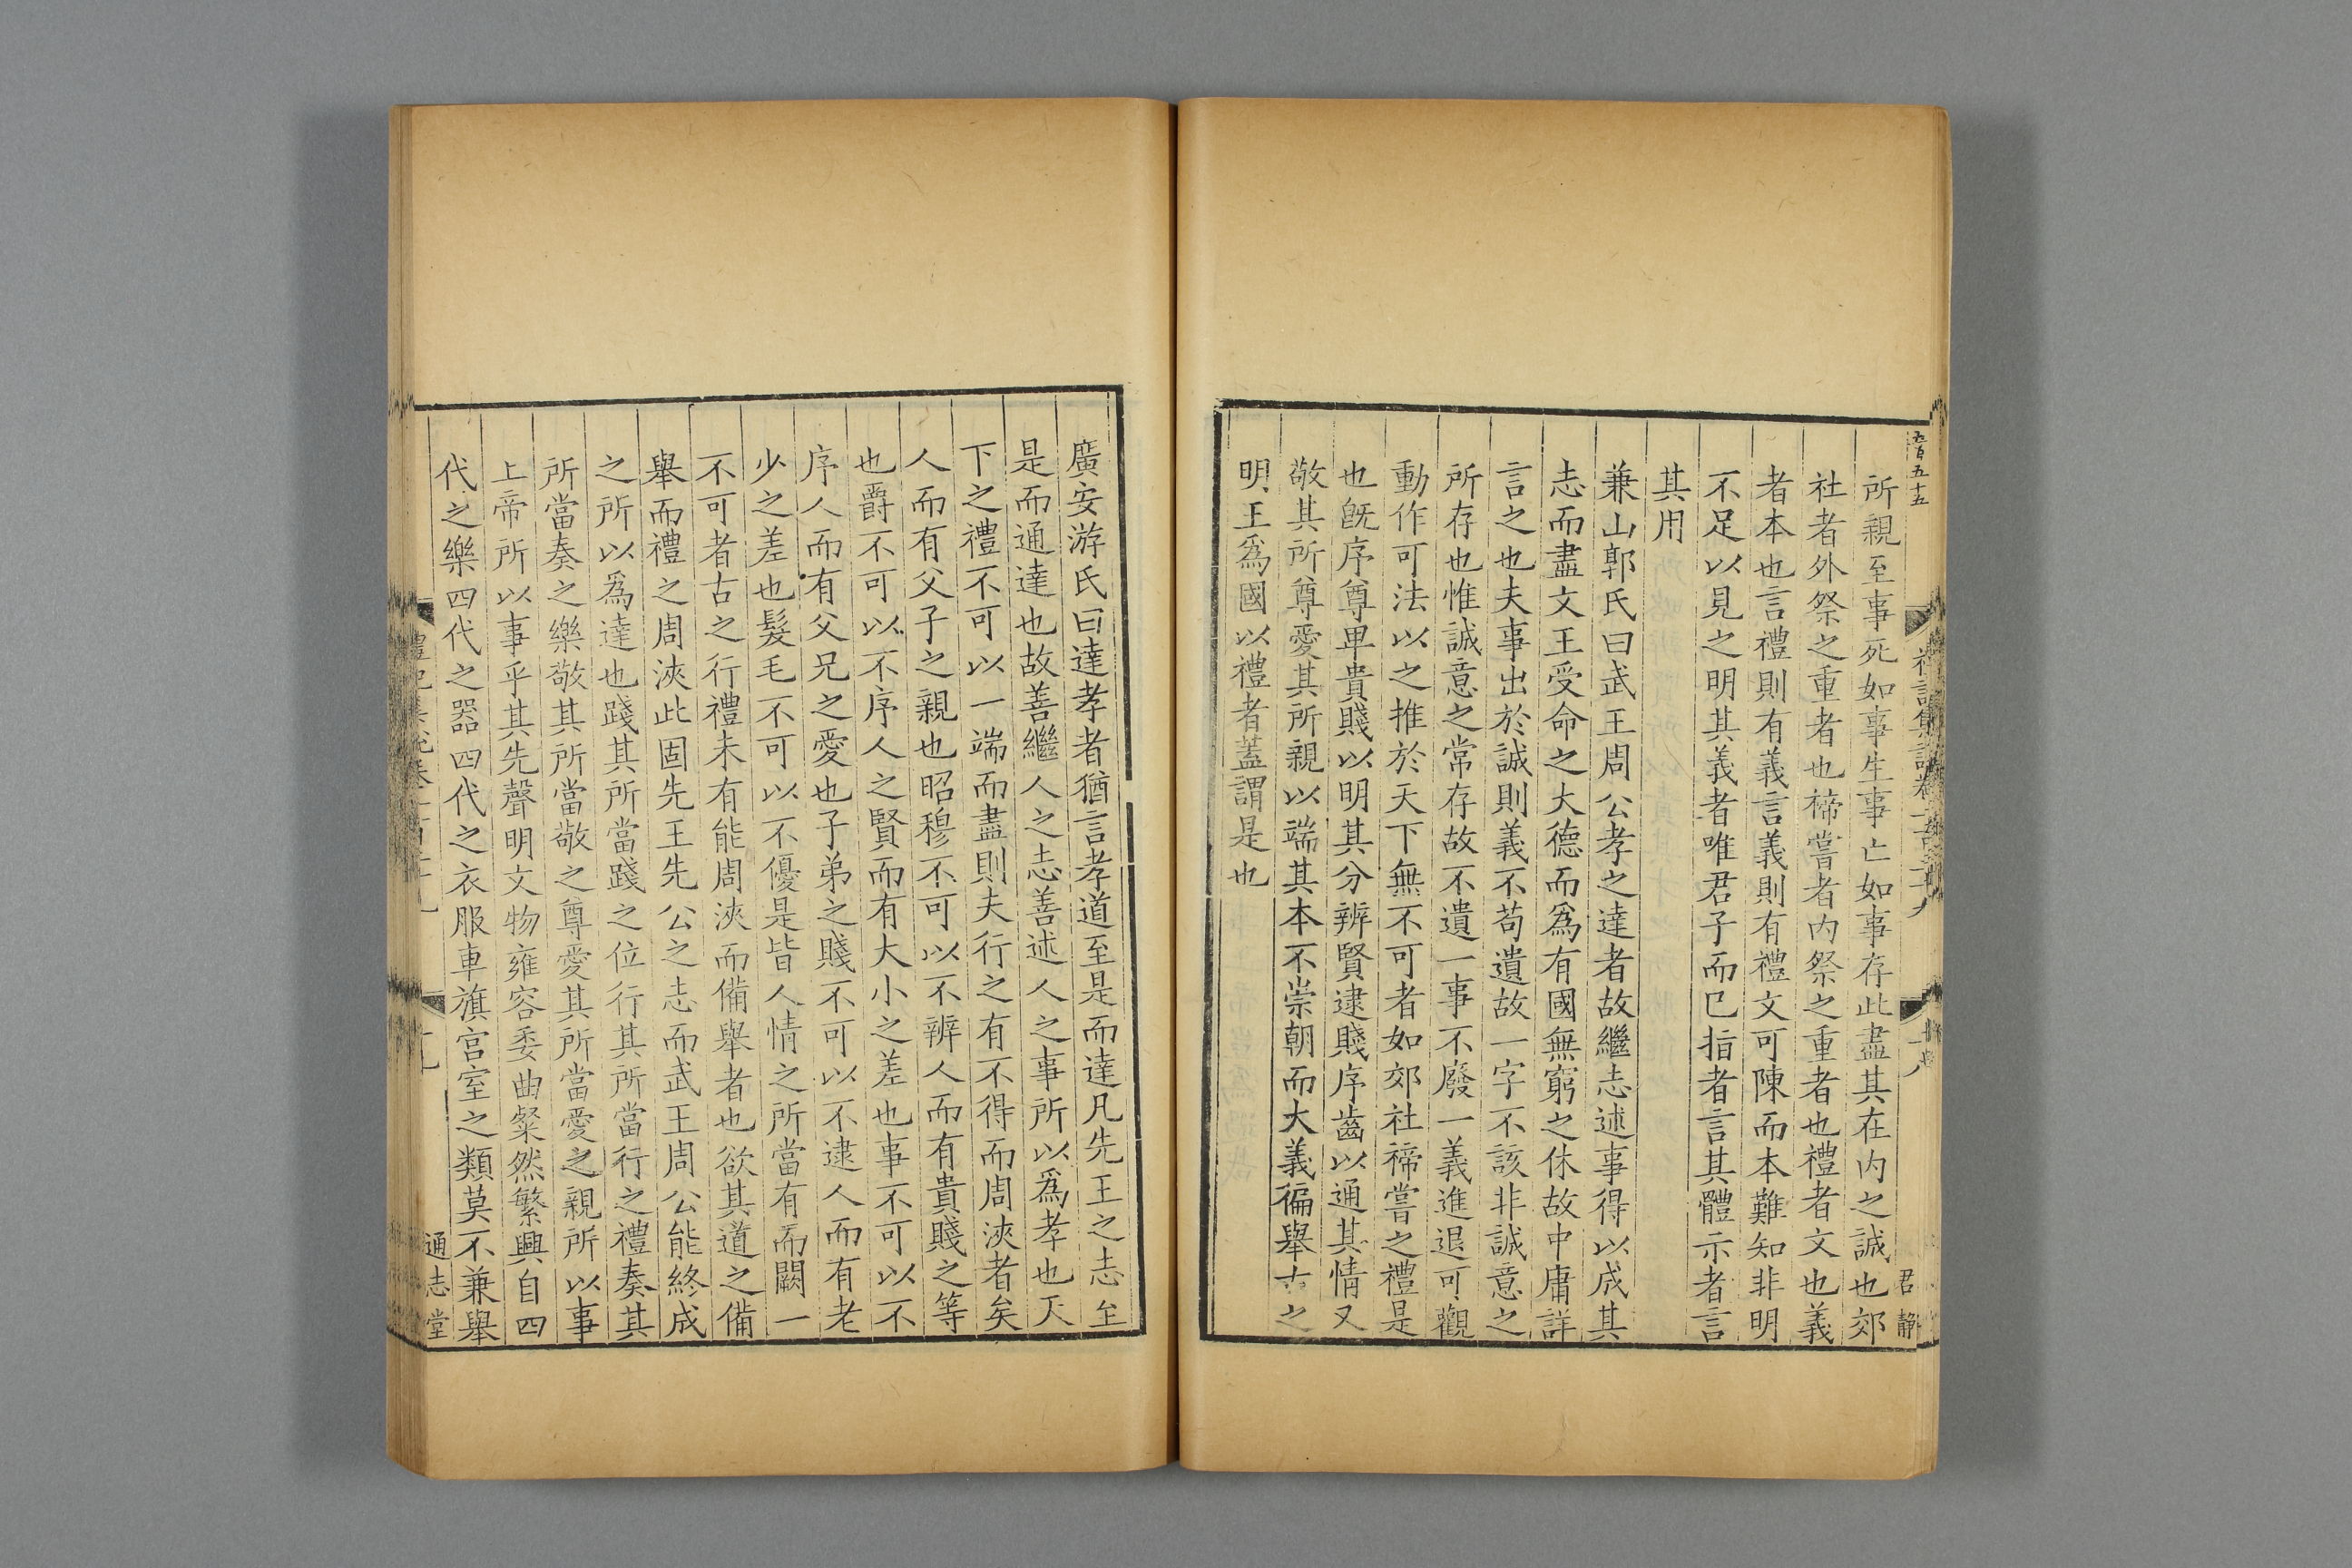 五百五十五
所親至事死如事生事亡如事存此盡其在内之誠也郊
社者外祭之重者也禘嘗者内祭之重者也禮者文也義
者本也言禮則有義言義則有禮文可陳而本難知非明
不足以見之明其義者唯君子而巳指者言其體示者言
其用
兼山郭氏曰武王周公孝之達者故繼志述事得以成其
志而盡文王受命之大德而爲有國無窮之休故中庸詳
言之也夫事出於誠則義不苟遺故一字不該非誠意之
所存也惟誠意之常存故不遺一事不廢一義進退可觀
動作可法以之推於天下無不可者如郊社禘嘗之禮是
也旣序尊卑貴賤以明其分辨賢逮賤序齒以通其情又
敬其所尊愛其所親以端其本不崇朝而大義徧舉古之
明王爲國以禮者蓋謂是也
君静
廣安游氏曰達孝者猶言孝道至是而達凡先王之志至
是而通達也故善繼人之志善述人之事所以爲孝也天
下之禮不可以一端而盡則夫行之有不得而周浹者矣
人而有父子之親也昭穆不可以不辨人而有貴賤之等
也爵不可以不序人之賢而有大小之差也事不可以不
序人而有父兄之愛也子弟之賤不可以不逮人而有老
少之差也髮毛不可以不優是皆人情之所當有而闕一
不可者古之行禮未有能周浹而備舉者也欲其道之備
舉而禮之周浹此固先王先公之志而武王周公能終成
之所以爲達也踐其所當踐之位行其所當行之禮奏其
所當奏之樂敬其所當敬之尊愛其所當愛之親所以事
上帝所以事乎其先聲明文物雍容委曲粲然繁興自四
代之樂四代之器四代之衣服車旗宫室之類莫不兼舉
通志堂